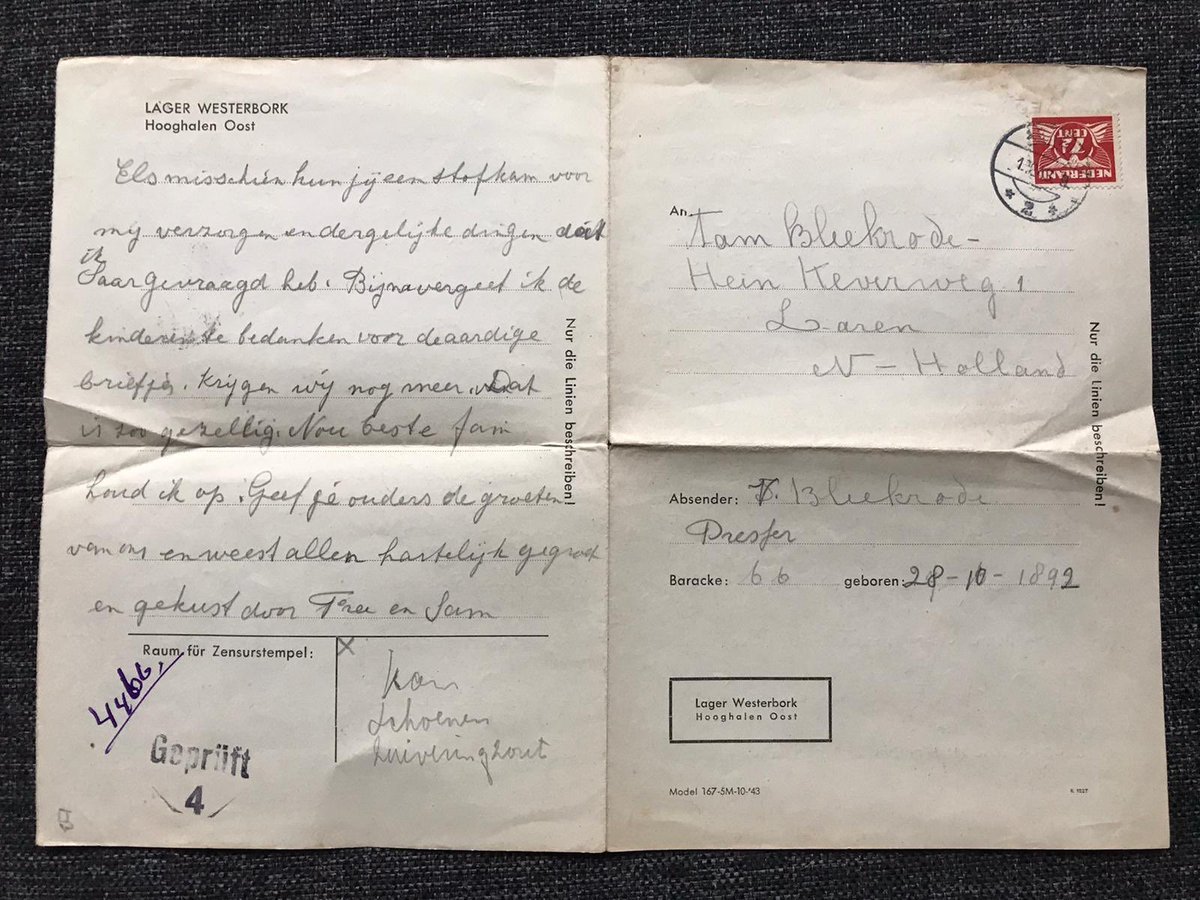 LAGER WESTERBORK
Hooghalen Oost
Els misschien kun jij een stofkam voor
mij verzorgen en dergelijke dingen dat
ik
Saar gevraagd heb. Bijna vergeet ik de
kinderen te bedanken voor de aardige
briefjes. Krijgen wij nog meer. Dat
is zoo gezellig. Nou beste fam
houd ik op. Geef je ouders de groeten
van ons en weest allen hartelijk gegroet
en gekust door en Sam
Nur die Linien beschreiben!
Raum für Zensurstempel:
4466.
Geprüft
4
X
Kam
Schoenen
Zuiveringzout
NEDERLAND
7½
CENT
2
An
Fam Bleekrode-
Hein Keverweg 1
Laren
N-Holland
Nur die Linien beschreiben!
Absender: Bleekrode
Presser
Baracke: 66 geboren: 28-10-1892
Lager Westerbork
Hooghalen Oost
Model 167-5M-10-'43